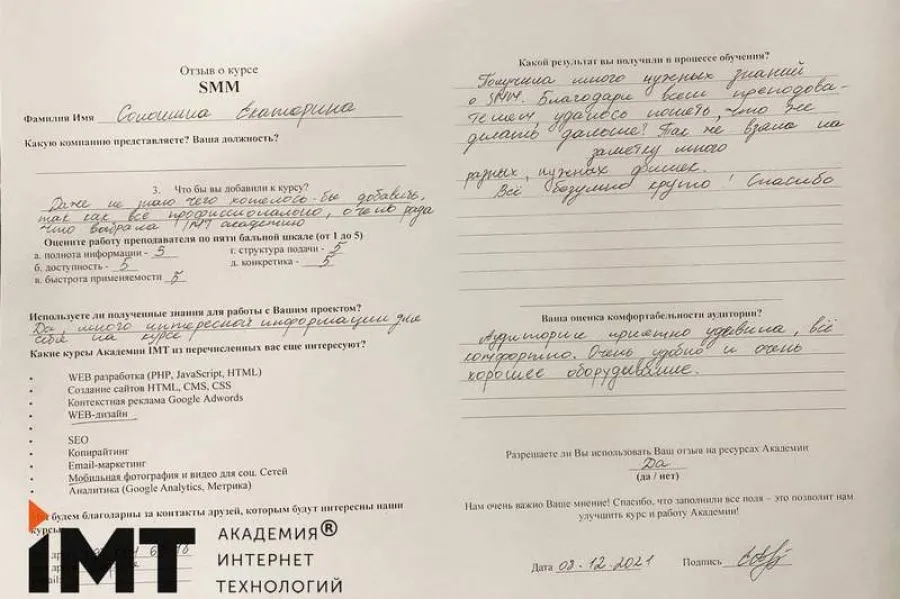 Отзыв о курсе
SMM
Фамилия Имя Соношина Екатерина
Какую компанию представляете? Ваша должность?
3. Что бы вы добавили к курсу?
Даже не знаю чего хотелось бы добавить,
так как все профессионально, очень рада
что выбрала IMT академию
Оцените работу преподавателя по пяти бальной шкале (от 1 до 5)
а. полнота информации - 5 г. структура подачи - 5
б. доступность - 5 д. конкретика - 5
в. быстрота применяемости 5
Используете ли полученные знания для работы с Вашим проектом?
Да, много интересной информации для
себя на курсе
Какие курсы Академии IMT из перечисленных вас еще интересуют?
WEB разработка (PHP, JavaScript, HTML)
Создание сайтов HTML, CMS, CSS
Контекстная реклама Google Adwords
WEB-дизайн
SEO
Копирайтинг
Email-маркетинг
Мобильная фотография и видео для соц. Сетей
Аналитика (Google Analytics, Метрика)
будем благодарны за контакты друзей, которым будут интересны наши
курсы
IMT АКАДЕМИЯ®
ИНТЕРНЕТ
ТЕХНОЛОГИЙ
Какой результат вы получили в процессе обучения?
Получила много нужных знаний
о SMM. Благодаря всем преподова-
телем, удалось понять, что же
делать дальше! Так же взяла на
заметку много
разных, нужных фишек.
Всё безумно круто! Спасибо
Ваша оценка комфортабельности аудитории?
Аудитория приятно удивила, всё
комфортно. Очень удобно и очень
хорошее оборудывание.
Разрешаете ли Вы использовать Ваш отзыв на ресурсах Академии
Да
(да / нет)
Нам очень важно Ваше мнение! Спасибо, что заполнили все поля – это позволит нам
улучшить курс и работу Академии!
Дата 08.12.2021 Подпись